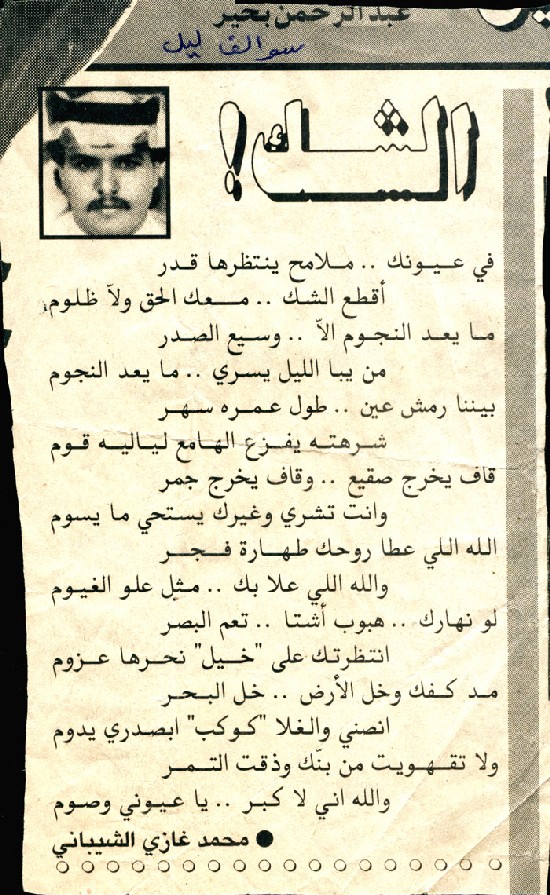 عبدالرحمن بخير
سوالف ليل
الشك!
في عيونك .. ملامح ينتظرها قدر
أقطع الشك .. معك الحق ولاّ ظلوم
ما يعد النجوم الاّ .. وسيع الصدر
من يبا الليل يسري .. ما يعد النجوم
بيننا رمش عين .. طول عمره سهر
شرهته يفزع الهامع لياليه قوم
قاف يخرج صقيع .. وقاف يخرج جمر
وانت تشري وغيرك يستحي ما يسوم
الله اللي عطا روحك طهارة فجر
والله اللي علا بك .. مثل علو الغيوم
لو نهارك .. هبوب أشتا .. تعم البصر
انتظرتك على "خيل" نحرها عزوم
مد كفك وخل الأرض .. خل البحر
انصني والغلا "كوكب" ابصدري يدوم
ولا تقهويت من بنّك وذقت التمر
والله اني لا كبر .. يا عيوني وصوم
● محمد غازي الشيباني